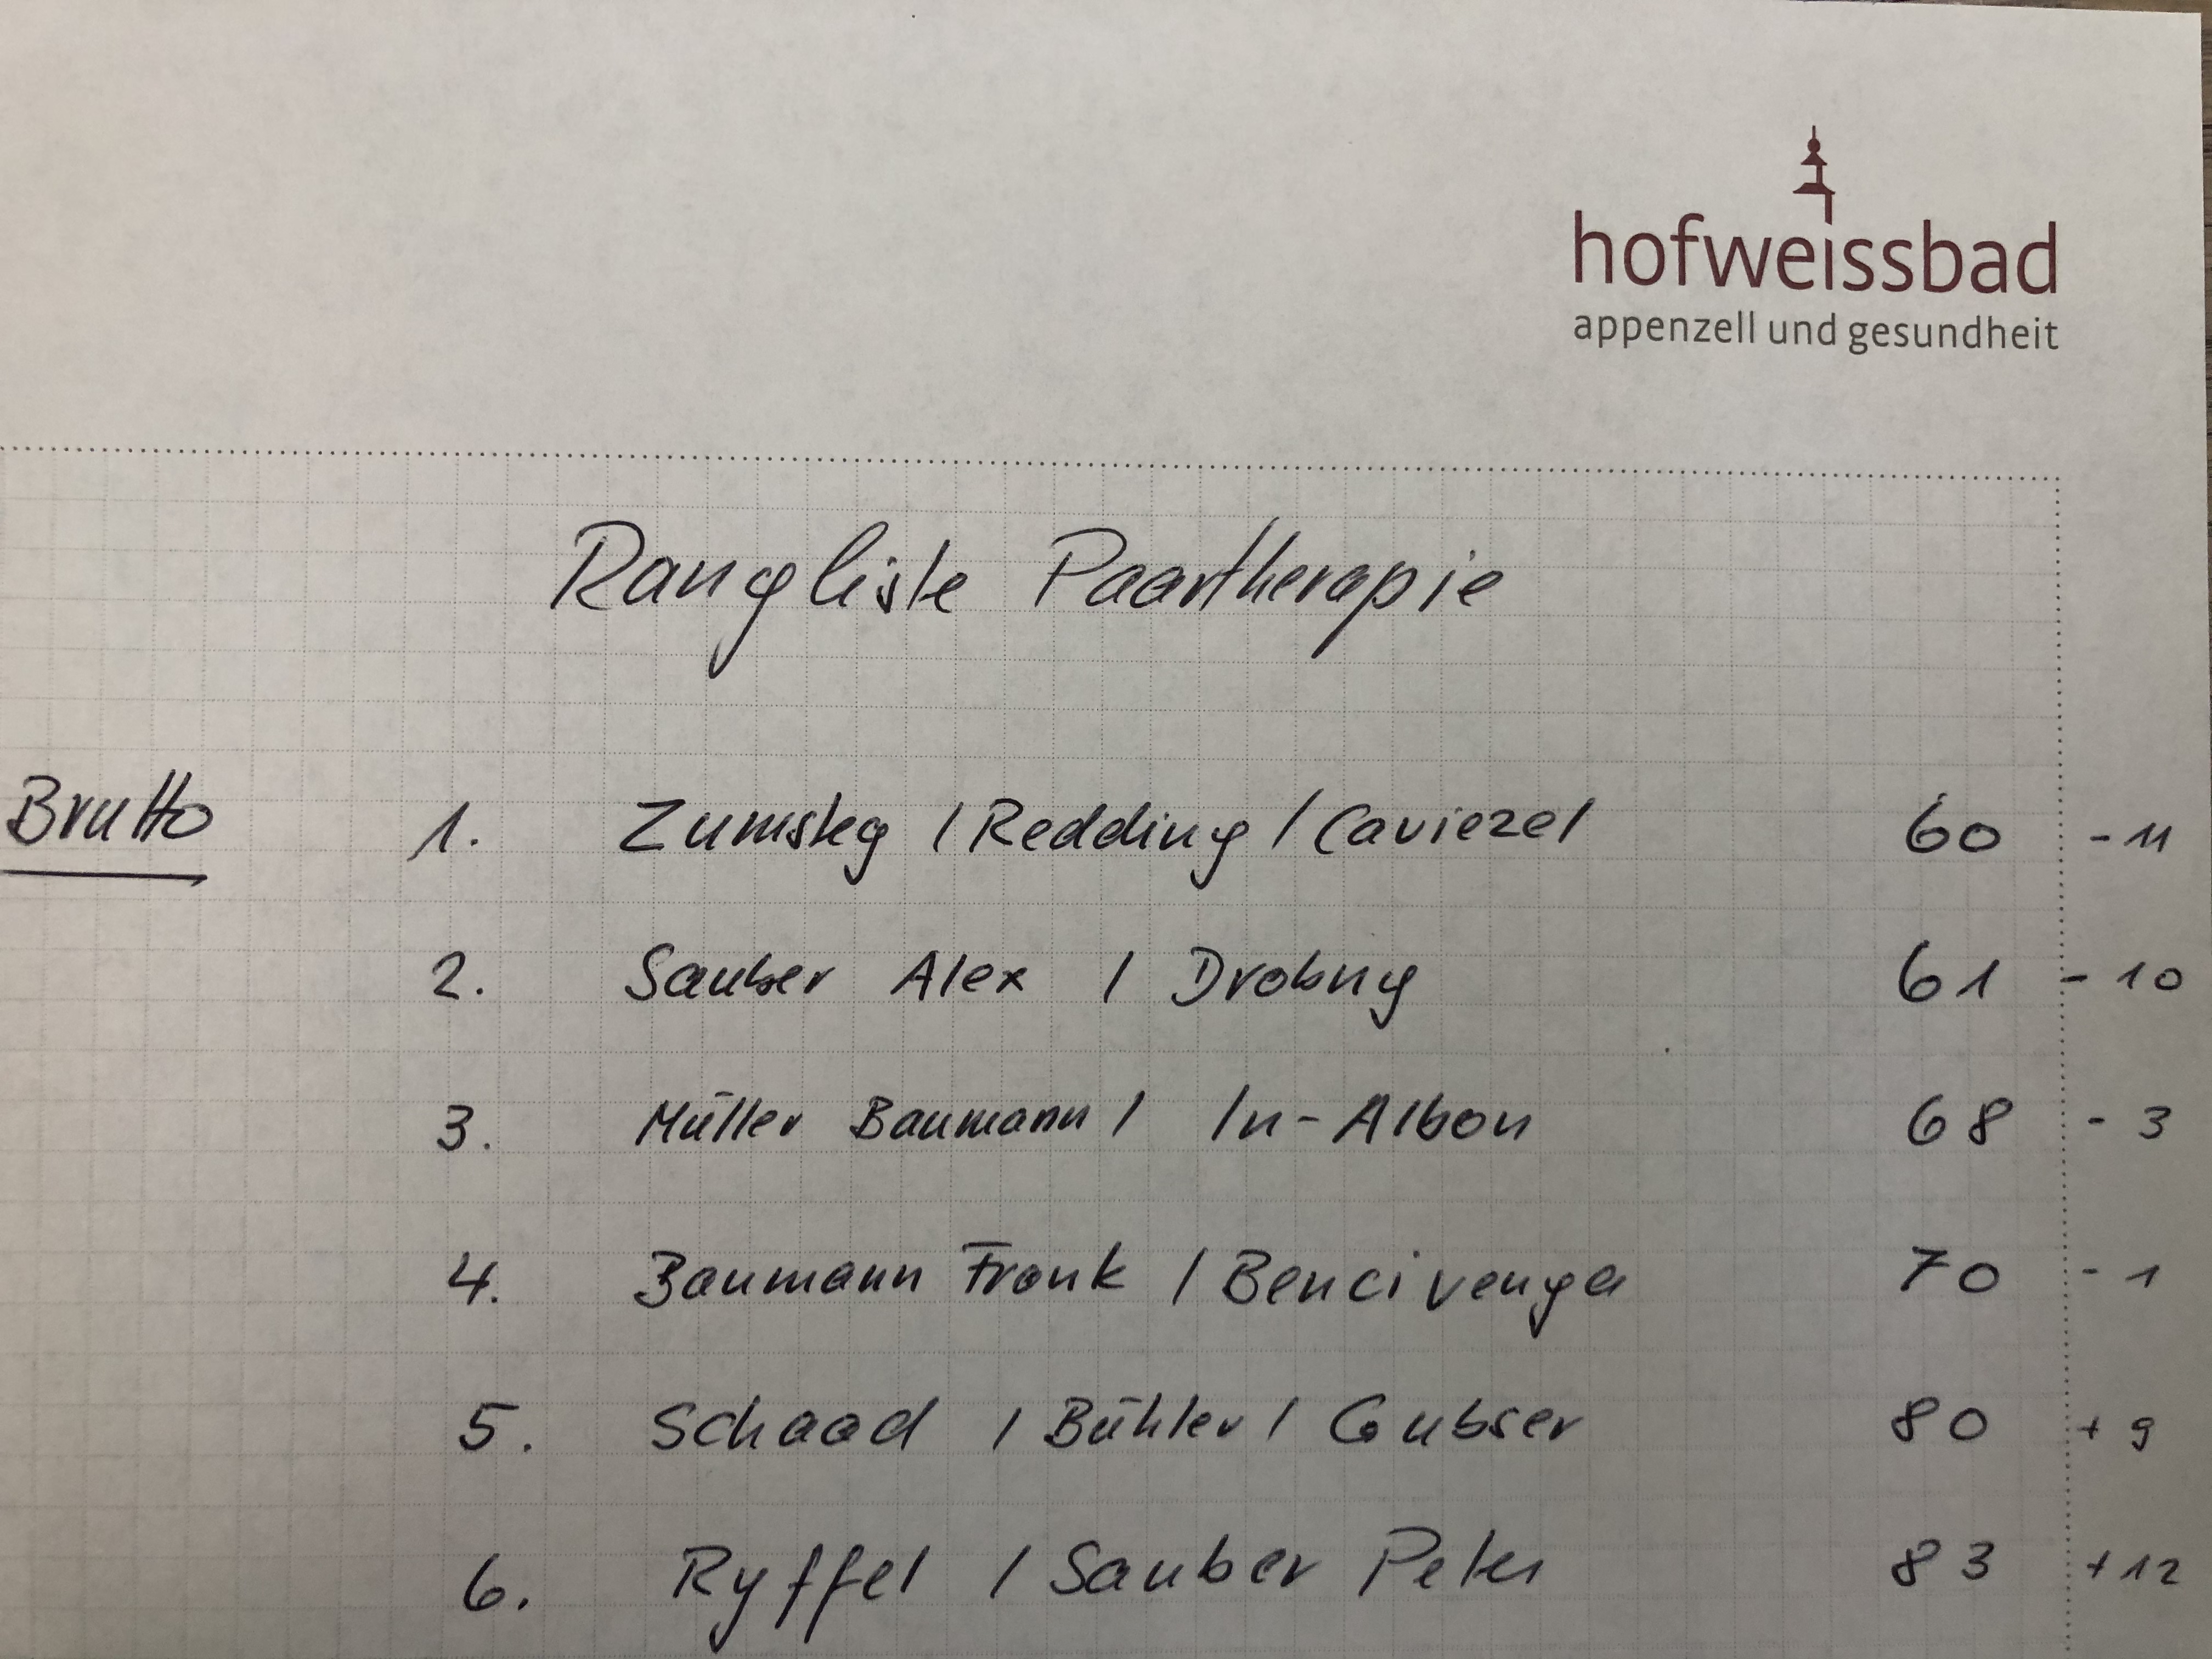 hofweissbad
appenzell und gesundheit
Rangliste Paartherapie
Brutto 1. Zumsteg / Redding / Caviezel 60 - 11
2. Sauber Alex / Drobny 61 - 10
3. Müller Baumann / In-Albon 68 - 3
4. Baumann Frank / Bencivenga 70 - 1
5. Schaad / Bühler / Gubser 80 + 9
6. Ryffel / Sauber Peter 83 + 12